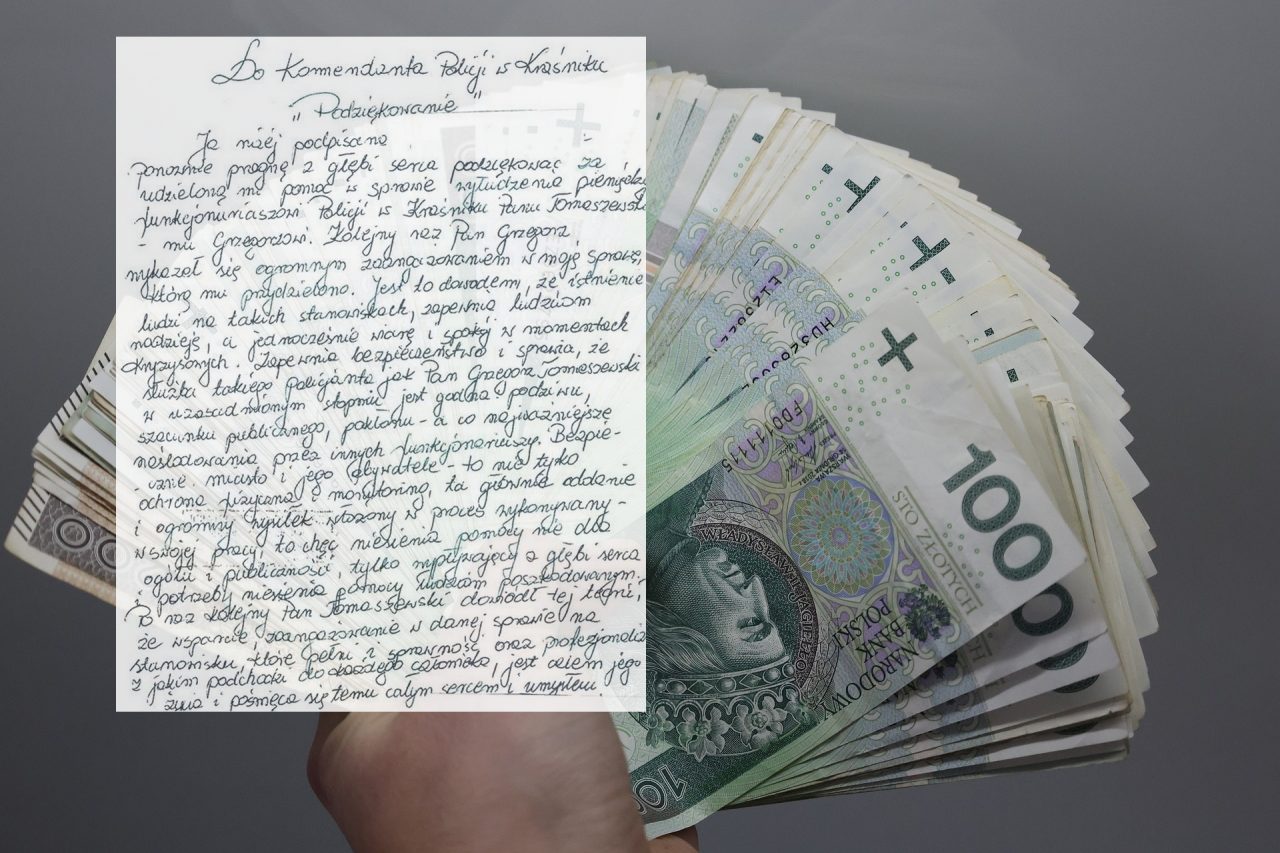 Do Komendanta Policji w Kraśniku
„Podziękowanie"
Ja niżej podpisana
ponownie pragnę z głębi serca podziękować za
udzieloną mi pomoc w sprawie wyłudzenia pieniędzy
funkcjonariuszowi Policji w Kraśniku Panu Tomaszewski
- mu Grzegorzowi. Kolejny raz Pan Grzegorz
wykazał się ogromnym zaangażowaniem w moją sprawę,
którą mu przydzielono. Jest to dowodem, że istnienie
ludzi na takich stanowiskach, zapewnia ludziom
nadzieję, a jednocześnie wiarę i spokój w momentach
kryzysowych. Zapewnia bezpieczeństwo i sprawia, że
służba takiego policjanta jak Pan Grzegorz Tomaszewski
w uzasadnionym stopniu jest godna podziwu,
szacunku publicznego, pokłonu - a co najważniejsze
naśladowania przez innych funkcjonariuszy. Bezpie-
czne miasto i jego obywatele - to nie tylko
ochrona fizyczna, monitoring, ta głównie oddanie
i ogromny wysiłek włożony w proces wykonywany -
w swojej pracy, to chęć niesienia pomocy nie dla
ogółu i publiczności, tylko wypływającej z głębi serca
i potrzeby niesienia pomocy ludziom poszkodowanym.
Po raz kolejny Pan Tomaszewski dowiódł tej
że wsparcie zaangażowanie w danej sprawie na
stanowisku, które pełni i sprawność oraz profesjonalizm
z jakim podchodzi do każdego człowieka, jest celem jego
życia i poświęca się temu całym sercem i umysłem.
EI
HU
FD0111115
100
STO ZŁOTYCH
NARODOWY
BANK
POLSKI
WŁADYSŁAW II JAGIEŁŁO
100